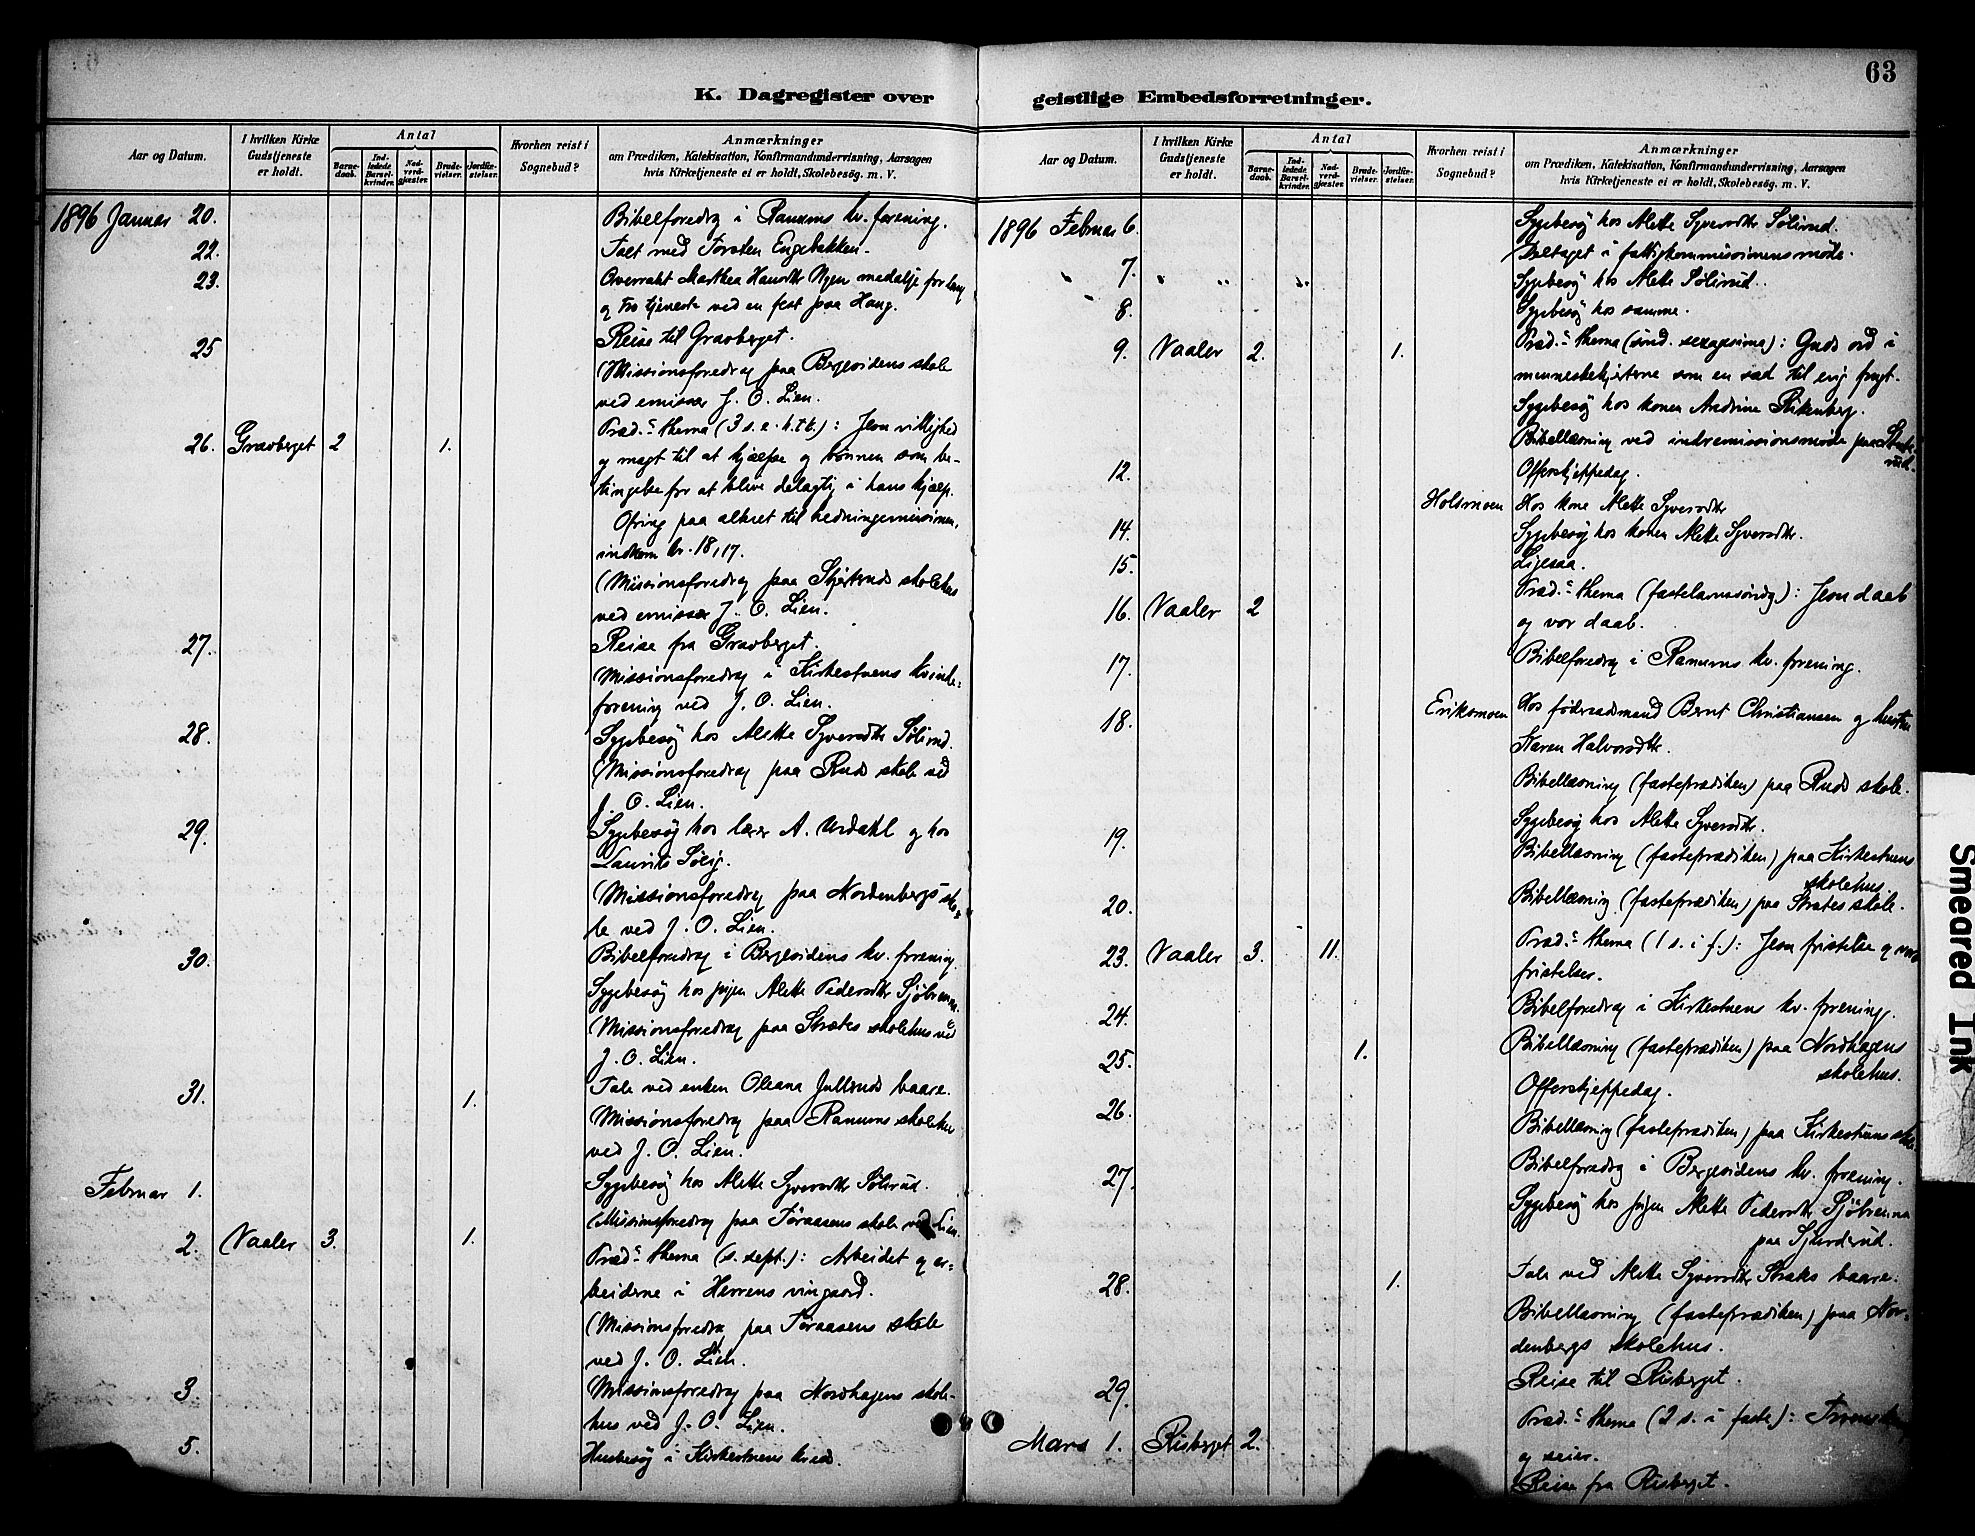 63
K. Dagregister over geistlige Embedsforretninger.
Aar og Datum.
I hvilken Kirke Gudstjeneste er holdt.
Antal
Barnedaab.
Indledede Barselkvinder.
Nadverdgjester.
Brudevielser.
Jordfæstelser.
Hvorhen reist i Sognebud?
Anmærkninger
om Prædiken, Katekisation, Konfirmandundervisning, Aarsagen
hvis Kirketjeneste ei er holdt, Skolebesøg. m. V.
1896 Januar 20. Bibelforedrag i Ranums kv. forening.
22. Talt med Torsten Engebakken.
23. Overrakt Marthea Hansdtr Nyen medalje for lang
og tro tjeneste ved en fest paa Haug.
25 Reise til Gravberget.
Missionsforedrag paa Bergesidens skole
ved emissær J. O. Lien.
26. Gravberget 2 1. Præd.s thema (3 s. e. h. t. k.): Jesu villighed
og magt til at hjælpe og bønnen som be-
tingelse for at blive delagtig i hans hjælp.
Ofring paa alteret til hedningemissionen,
indkom kr. 18,17.
(Missionsforedrag paa skolehus
ved emissær J. O. Lien.
27. Reise fra Gravberget.
Missionsforedrag i Kirkestuens kvinde-
forening ved J. O. Lien.
28. Sygebesøg hos Alette Syversdtr Sølirud.
(Missionsforedrag paa Ruds skole ved
J. O. Lien.
29. Sygebesøg hos lærer A. Urdahl og hos
Laurits
(Missionsforedrag paa Nordenbergs sko-
le ved J. O. Lien.
30. Bibelforedrag i Bergesidens kv. forening.
Sygebesøg hos pigen Alette Pedersdtr
(Missionsforedrag paa Strætes skolehus ved
J. O. Lien.
31. 1. Tale ved enken Oleana Gullruds baare.
Missionsforedrag paa Ranums skolehus
ved J. O. Lien.
Februar 1. Sygebesøg hos Alette Syversdtr Sølirud.
(Missionsforedrag paa skole ved Lien.
2. Vaaler 3. 1. Præd.s thema (s. sept.): Arbeidet og ar-
beiderne i Herrens vingaard.
(Missionsforedrag paa skole
ved J. O. Lien.
3. Missionsforedrag paa Nordhagens skole-
hus ved J. O. Lien.
5. Husbesøg i Kirkestuens kreds.
Aar og Datum.
I hvilken Kirke Gudstjeneste er holdt.
Antal
Barnedaab.
Indledede Barselkvinder.
Nadverdgjester.
Brudevielser.
Jordfæstelser.
Hvorhen reist i Sognebud?
Anmærkninger
om Prædiken, Katekisation, Konfirmandundervisning, Aarsagen
hvis Kirketjeneste ei er holdt, Skolebesøg. m. V.
1896 Februar 6. Sygebesøg hos Alette Syversdtr Sølirud.
Deltaget i fattigkommissionens møde.
7. Sygebesøg hos Alette Sølirud.
8. Sygebesøg hos samme.
9. Vaaler 2. 1. Præd.s thema (sønd. sexagesima): Guds ord i
menneskehjerterne som en sæd til evig frugt.
Sygebesøg hos konen Andrine
Bibellæsning ved indremissionsmøde paa
12. Offerskjeppedag.
Holsmoen Hos kone Alette Syversdtr
14. Sygebesøg hos konen Alette Syversdtr.
15. Ligesaa.
16. Vaaler 2 Præd.s thema (fastelavnssøndg.): Jesu daab
og vor daab.
17. Bibelforedrag i Ranums kv. forening.
18. Eriksmoen Hos føderaadsmand Bernt Christiansen og hustru
Karen Halvorsdtr.
Bibellæsning (fasteprædiken) paa Ruds skole.
19. Sygebesøg hos Alette Syversdtr.
Bibellæsning (fasteprædiken) paa Kirkestuens
skolehus
20. Bibellæsning (fasteprædiken) paa Strætes skole.
23. Vaaler 3. 11. Præd.s thema (1 s. i f.): Jesu fristelse og vore
fristelser.
24. Bibelforedrag i Kirkestuens kv. forening.
25. 1. Bibellæsning (fasteprædiken) paa Nordhagens
skolehus.
26. Offerskjeppedag.
Bibellæsning (fasteprædiken) paa Kirkestuens skole
27. Bibelforedrag i Bergesidens kv. forening.
Sygebesøg hos pigen Alette Pedersdtr
paa Sjurderud.
28. 1. Tale ved Alette Syversdtr baare.
Bibellæsning (fasteprædiken) paa Nor-
denbergs skolehus.
29. Reise til Risberget.
Mars 1. Risberget 2. Præd.s thema (2 s. i faste):
og seier.
Reise fra Risberget.
Smeared Ink